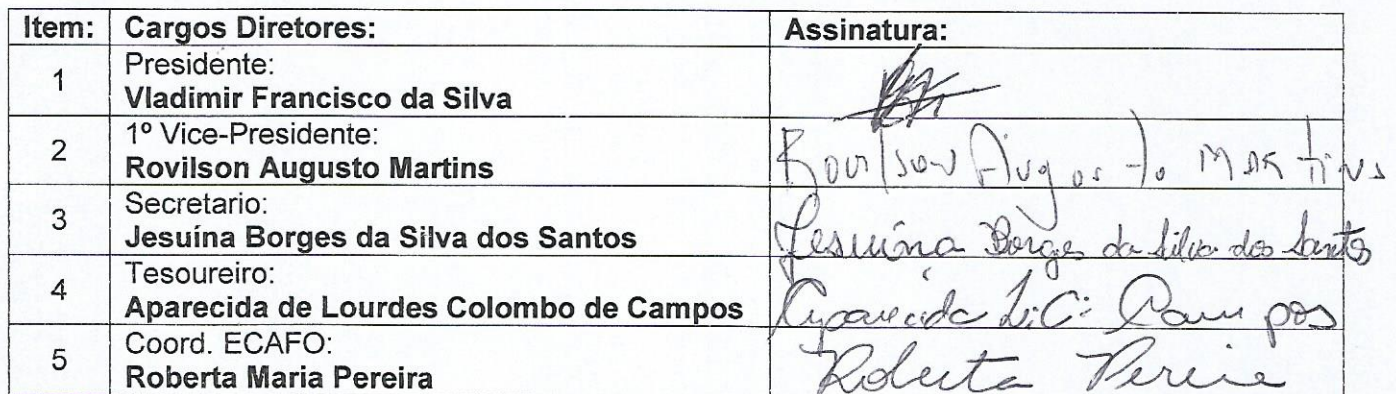 Item: Cargos Diretores: Assinatura:
1 Presidente:
Vladimir Francisco da Silva
2 1º Vice-Presidente:
Rovilson Augusto Martins Rovilson Augusto Martins
3 Secretario:
Jesuína Borges da Silva dos Santos Jesuína Borges da Silva dos Santos
4 Tesoureiro:
Aparecida de Lourdes Colombo de Campos Aparecida L.C. Campos
5 Coord. ECAFO:
Roberta Maria Pereira Roberta Pereira